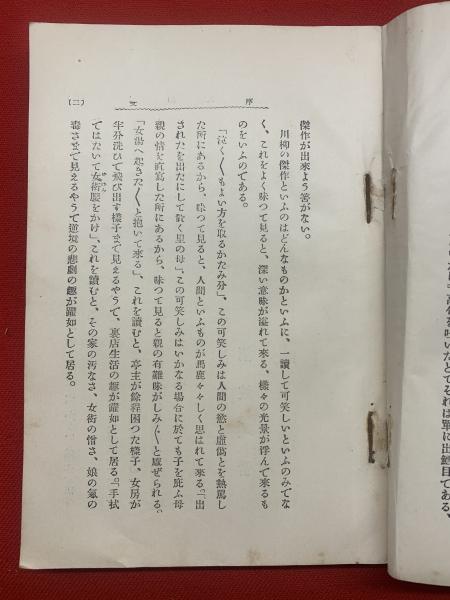 出來た」高名を呍いたとてそれは單に出鱈目である、
序文
(二)
傑作が出來よう筈がない。
川柳の傑作といふのはどんなものかといふに、一讀して可笑しいといふのみでな
く、これをよく味つて見ると、深い意味が溢れて來る、樣々の光景が浮んで來るも
のをいふのである。
「泣く〳〵もよい方を取るかたみ分」、この可笑しみは人間の慾と虛僞とを熱罵し
た所にあるから、味つて見ると、人間といふものが馬鹿々々しく思はれて來る。「出
されたを出たにして置く里の母」、この可笑しみはいかなる場合に於ても子を庇ふ母
親の情を直寫した所にあるから、味つて見ると親の有難味がしみ〴〵と感ぜられる。
「女湯へ起きた〳〵と抱いて來る」、これを讀むと、亭主が餘程困つた樣子、女房が
半分洗ひで飛び出す樣子まで見えるやうで、裏店生活の趣が躍如として居る。「手拭
ではたいて女衒腰をかけ」、これを讀むと、その家の汚なさ、女衒の憎さ、娘の氣の
毒さまで見えるやうで逆境の悲劇の趣が躍如として居る。